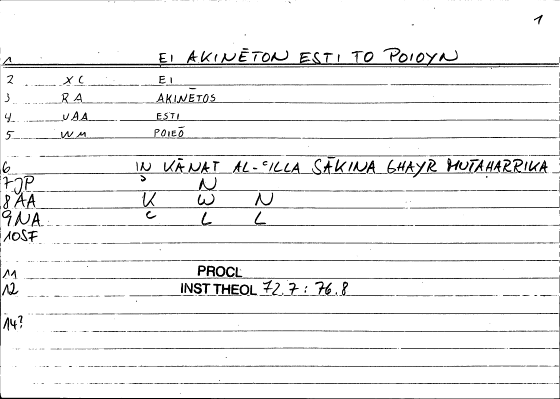 1
1 EI AKINĒTON ESTI TO POIOYN
2 XC EI
3 RA AKINĒTOS
4 UAA ESTI
5 WM POIEŌ
6 IN KĀNAT AL-ʿILLA SĀKINA GHAYR MUTAHARRIKA
7JP ʾ N
8AA K W N
9NA ʿ L L
10SF
11 PROCL
12 INST THEOL 72.7 : 76.8
14?